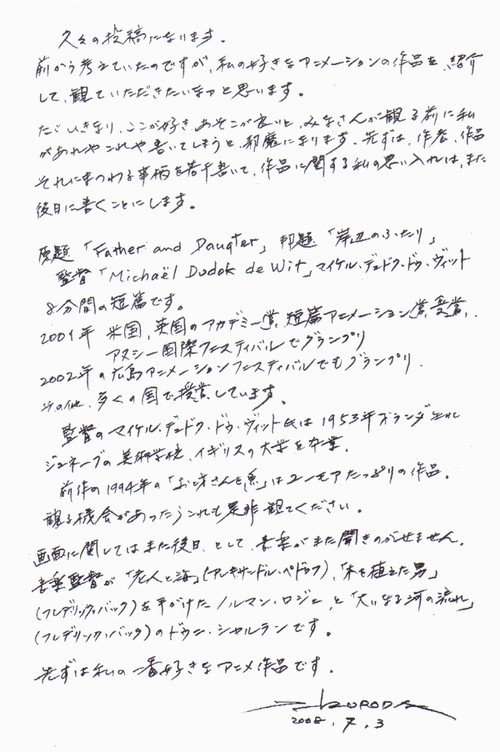 久々の投稿になります。
前から考えていたのですが、私の好きなアニメーションの作品を、紹介
して、観ていただきたいなァと思います。
ただいきなり、ここが好き、あそこが良いと、みなさんが観る前に私
があれやこれや書いてしまうと、邪魔になります。先ずは、作者、作品
それにまつわる事柄を若干書いて、作品に関する私の思い入れは、また
後日に書くことにします。
原題「Father and Daugter」邦題「岸辺のふたり」
監督「Michaël Dudok de Wit」マイケル・デュドク・ドゥ・ヴィット
8分間の短篇です。
2001年 米国、英国のアカデミー賞、短篇アニメーション賞、受賞、
アヌシー国際フェスティバルでグランプリ
2002年の広島アニメーションフェスティバルでもグランプリ.
その他、多くの国で授賞しています。
監督のマイケル・デュドク・ドゥ・ヴィット氏は1953年オランダ生れ
ジュネーブの美術学校、イギリスの大学を卒業.
前作の1994年の「お坊さんと魚」はユーモアたっぷりの作品.
観る機会があったらこれも是非観てください。
画面に関してはまた後日、として、音楽がまた聞きのがせません.
音楽監督が「老人と海」(アレキサンドル・ペドロフ)、「木を植えた男」
(フレデリック・バック)を手がけたノルマン・ロジェ、と「大いなる河の流れ」
(フレデリック・バック)のドゥニ・シャルランです。
先ずは私の一番好きなアニメ作品です。
KURODA
2008.7.3